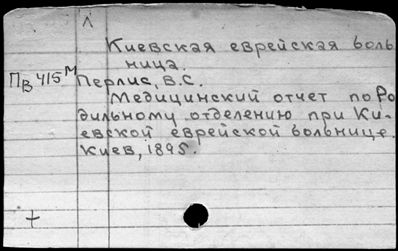 Л
Киевская еврейская боль
ница.
ПВ 415М Перлис, В.С.
Медицинский отчет по Ро
дильному отделению при Ки-
евской еврейской больнице.
Киев, 1895.
+